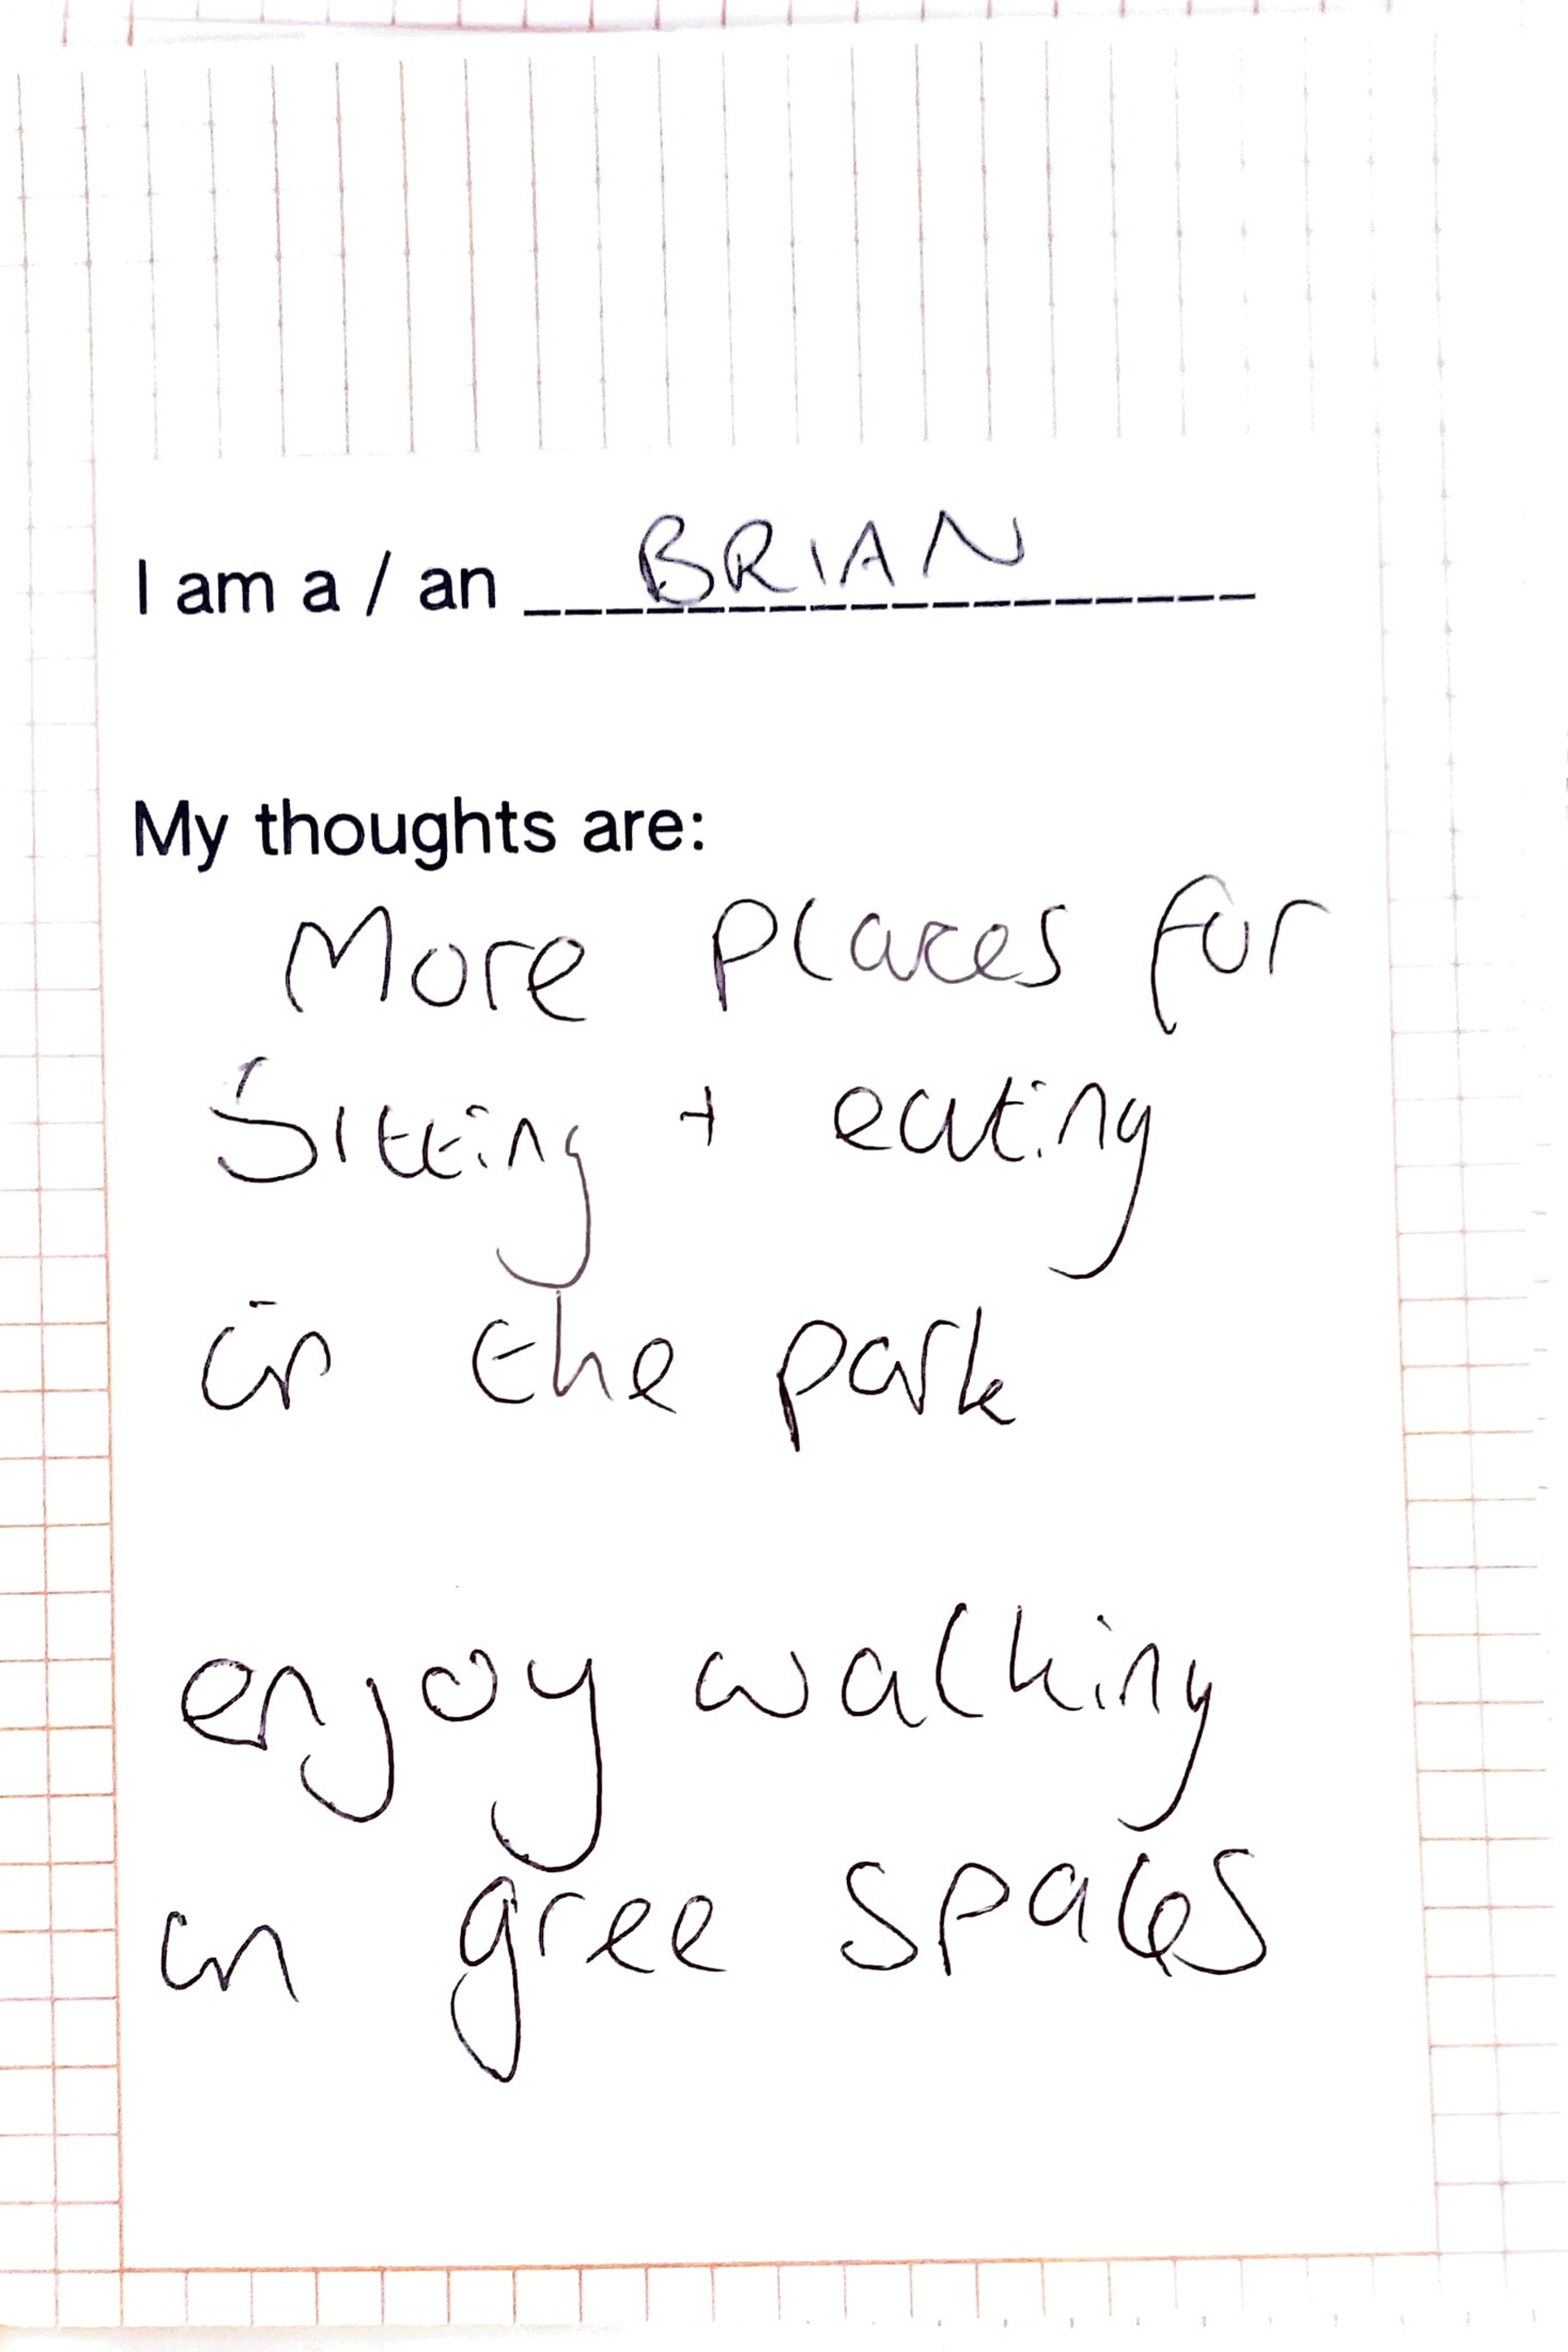 I am a / an BRIAN
My thoughts are:
More places for
Sitting + eating
in the park
enjoy walking
in gree spaces